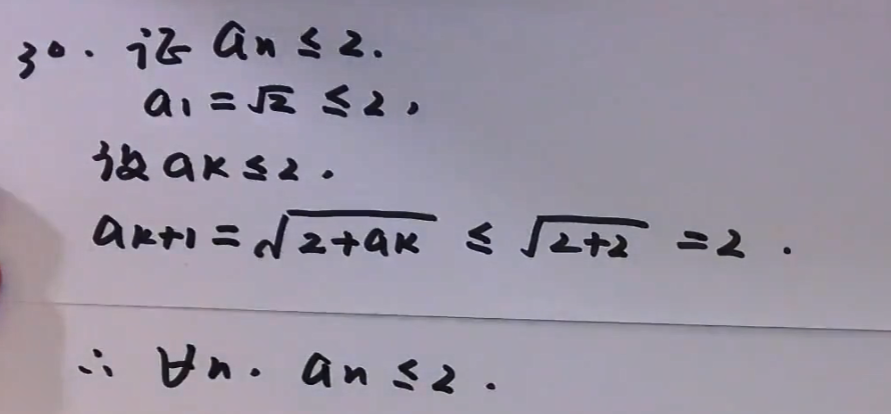 3°. 证 an ≤ 2.
a1 = √2 ≤ 2,
设 ak ≤ 2.
ak+1 = √(2+ak) ≤ √(2+2) = 2.
∴ ∀n. an ≤ 2.